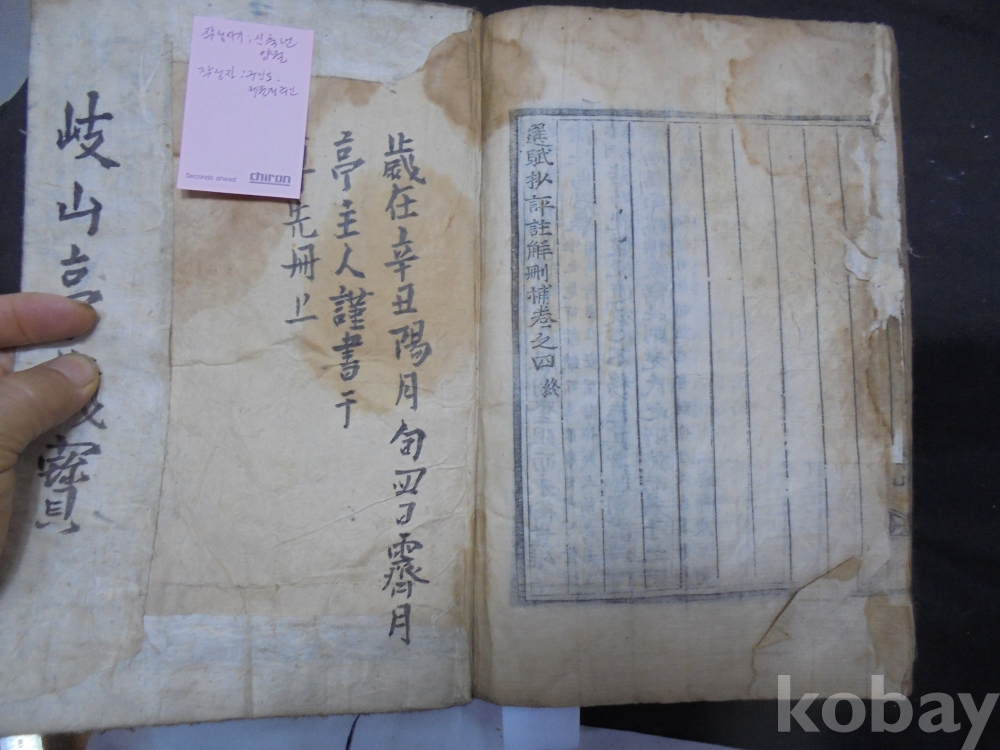 選賦抄評註解刪補卷之四 終
歲在辛丑陽月旬四日霽月
亭主人謹書于
先冊上
岐山亭 寶
작성시기 : 신축년
양월
작성자 :
Seconds ahead
chiron
kobay